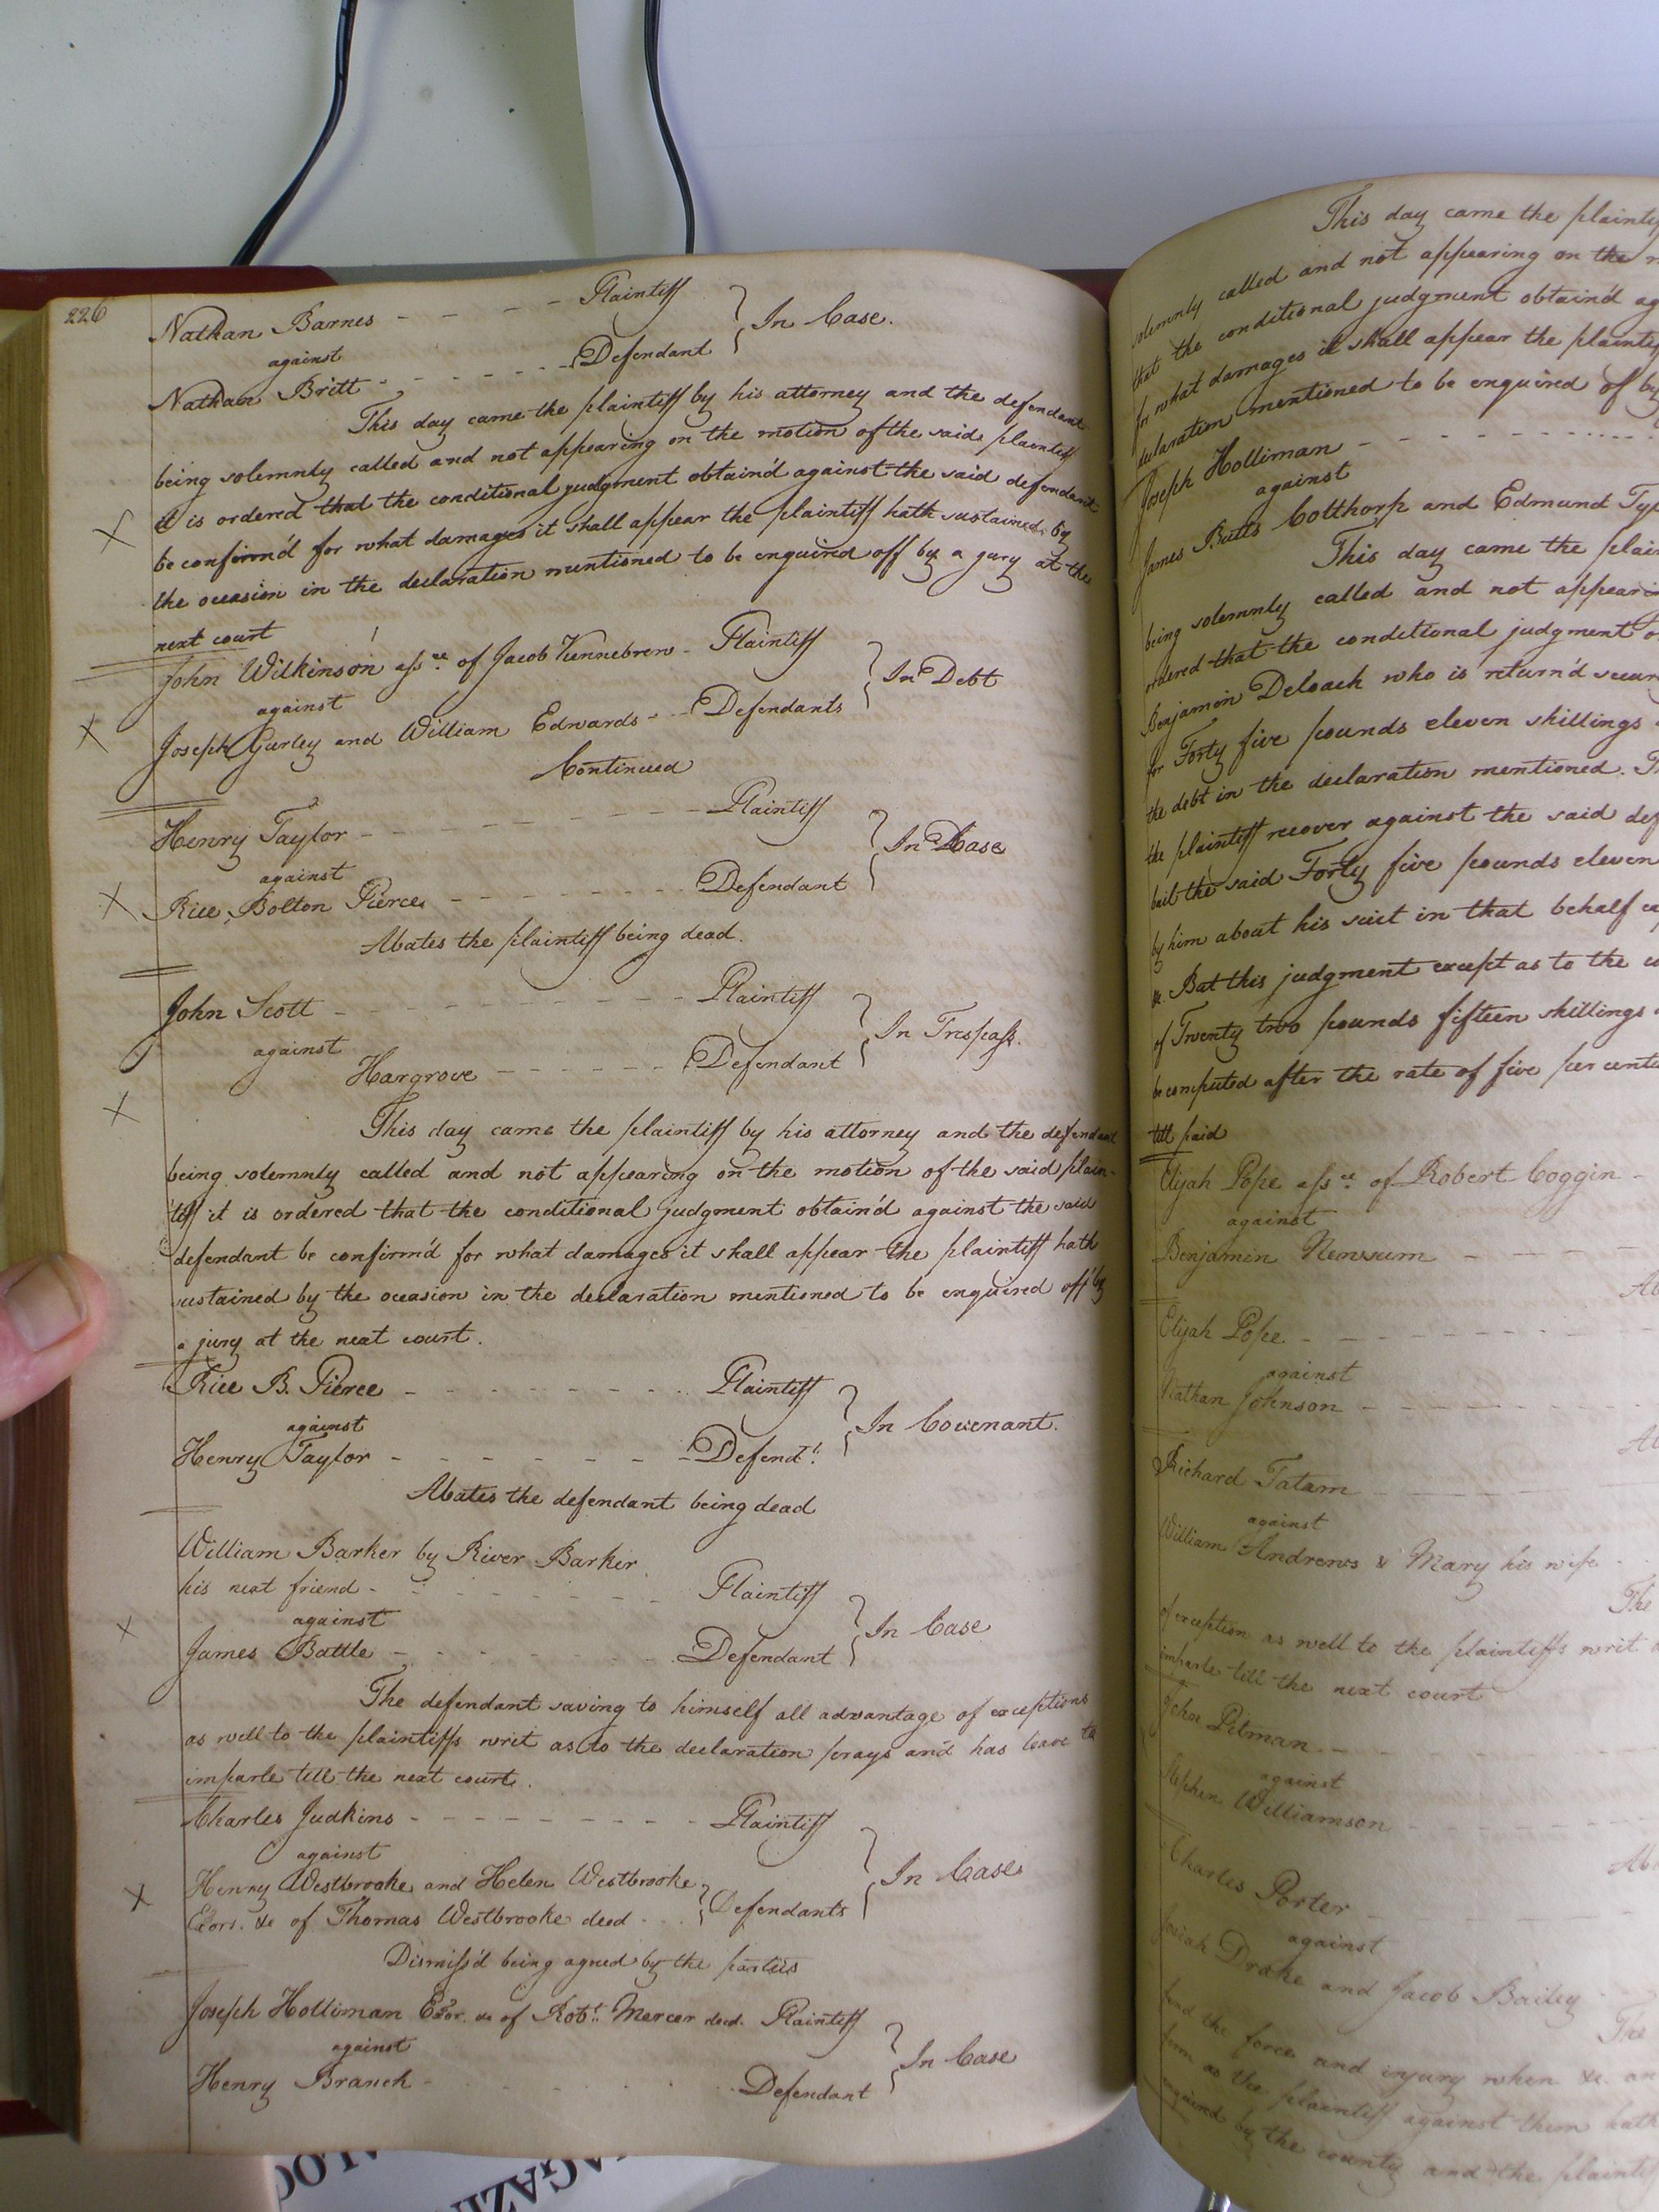 226
Nathan Barnes - - - - Plaintiff
against
In Case.
Nathan Britt - - - - - - Defendant
This day came the plaintiff by his attorney and the defendant
being solemnly called and not appearing on the motion of the said plaintiff
it is ordered that the conditional judgment obtain'd against the said defendant
be confirm'd for what damages it shall appear the plaintiff hath sustained by
the occasion in the declaration mentioned to be enquired off by a jury at the
next court
John Wilkinson assee. of Jacob Vennebrew - Plaintiff
against
In Debt
Joseph Gurley and William Edwards - - Defendants
Continued
Henry Taylor - - - - - - - - Plaintiff
against
In Case
Rice Bolton Pierce - - - - - - Defendant
Abates the plaintiff being dead.
John Scott - - - - - - - - Plaintiff
against
In Trespass.
Hargrove - - - - - - Defendant
This day came the plaintiff by his attorney and the defendant
being solemnly called and not appearing on the motion of the said plain-
tiff it is ordered that the conditional judgment obtain'd against the said
defendant be confirm'd for what damages it shall appear the plaintiff hath
sustained by the occasion in the declaration mentioned to be enquired off by
a jury at the next court.
Rice B. Pierce - - - - - - - - Plaintiff
against
In Covenant.
Henry Taylor - - - - - - - Defendt.
Abates the defendant being dead
William Barker by River Barker
his next friend - - - - - - - Plaintiff
against
In Case
James Battle - - - - - - - Defendant
The defendant saving to himself all advantage of exceptions
as well to the plaintiffs writ as to the declaration prays and has leave to
imparle till the next court.
Charles Judkins - - - - - - - - Plaintiff
against
In Case
Henry Westbrooke and Helen Westbrooke
Exors. &c of Thomas Westbrooke decd - - Defendants
Dismiss'd being agreed by the parties
Joseph Holliman Exor. &c of Robt. Mercer decd. Plaintiff
against
In Case
Henry Branch - - - - - Defendant
This day came the plaintiff
solemnly called and not appearing on the
that the conditional judgment obtain'd ag
for what damages it shall appear the plaintiff
declaration mentioned to be enquired of by
Joseph Holliman - - - - - - -
against
James Butts Colthorp and Edmund Ty
This day came the plai
being solemnly called and not appearin
ordered that the conditional judgment o
Benjamin Deloach who is return'd secur
for Forty five pounds eleven shillings
the debt in the declaration mentioned. Th
the plaintiff recover against the said def
bail the said Forty five pounds eleven
by him about his suit in that behalf ex
&c. But this judgment except as to the co
of Twenty two pounds fifteen shillings
be computed after the rate of five per cent
till paid
Elijah Pope assee. of Robert Coggin -
against
Benjamin Newsum - - - -
Ab
Elijah Pope - - - - - - -
against
Nathan Johnson - - - - -
Ab
Richard Tatam - - - - -
against
William Andrews & Mary his wife - -
The
of exception as well to the plaintiffs writ a
imparle till the next court
John Pitman - - -
against
Stephen Williamson - - - -
Aba
Charles Porter - - - -
against
Josiah Drake and Jacob Bailey
The
fend the force and injury when &c. an
form as the plaintiff against them hath
enquired by the county and the plaintiff
AGAZIN